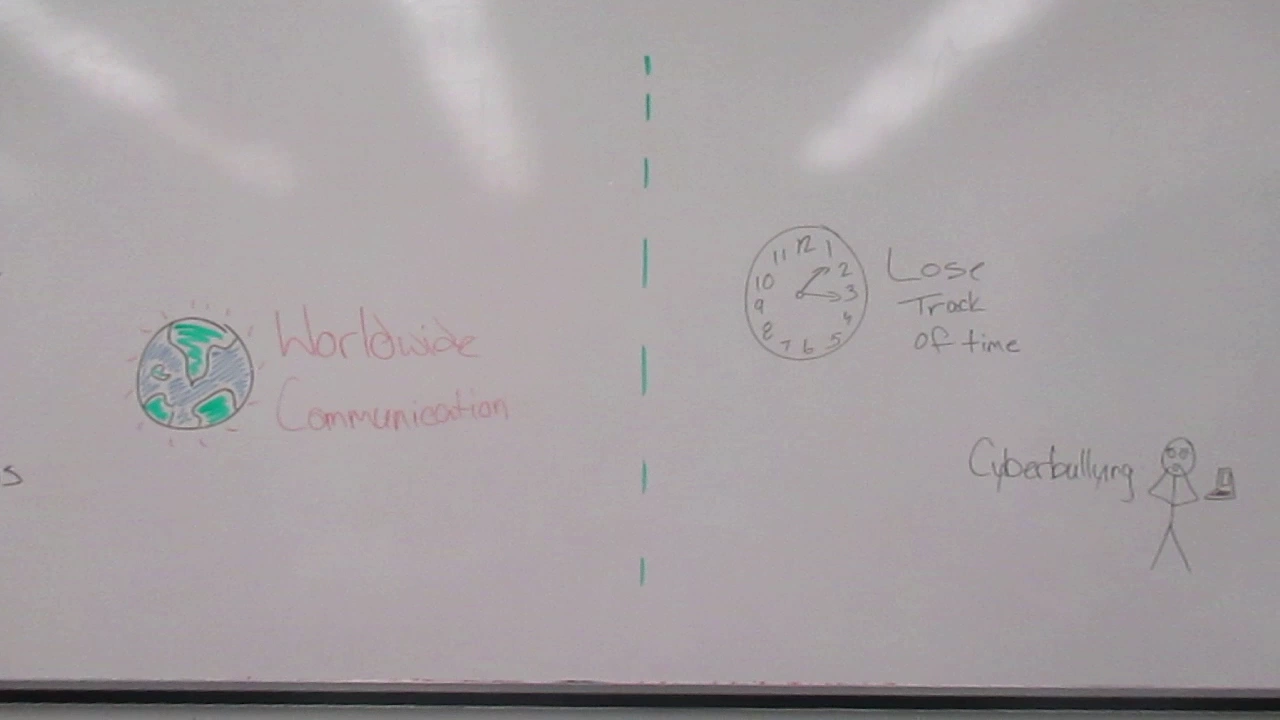 Worldwide
Communication
s
12
1
2
3
4
5
6
7
8
9
10
11
Lose
Track
of time
Cyberbullying